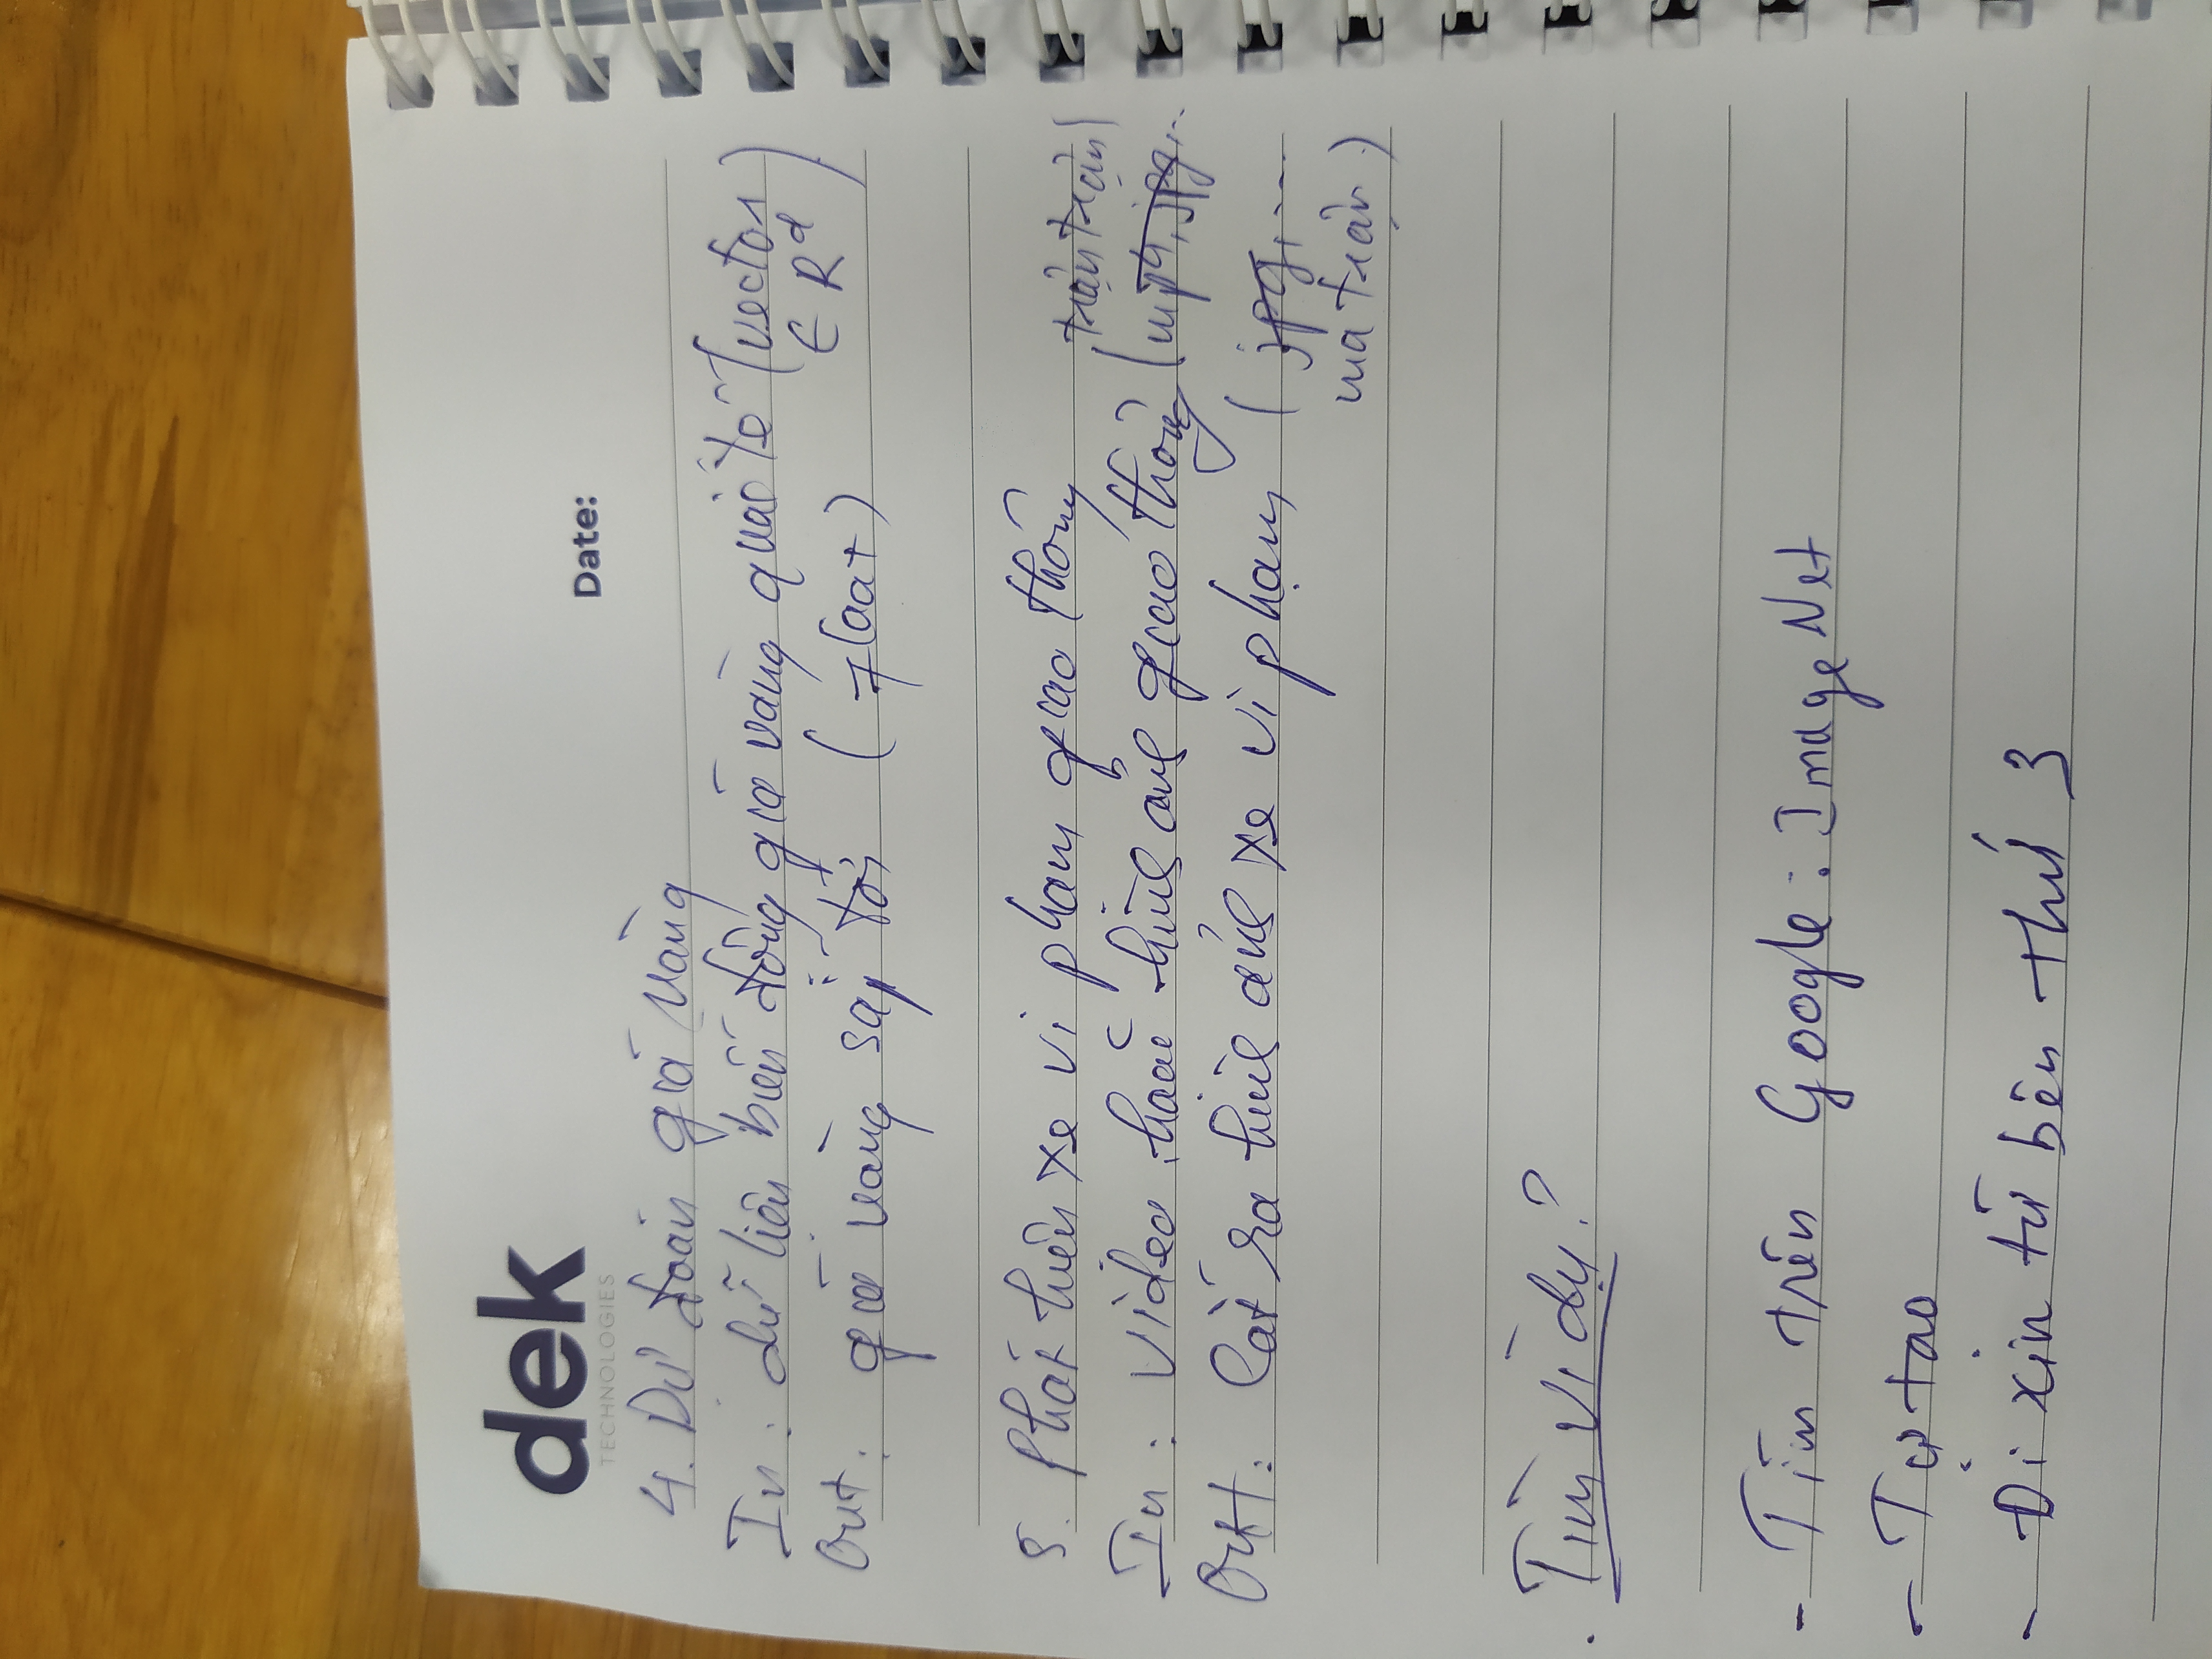 dek
TECHNOLOGIES
Date:
4. Dự đoán giá vàng
In: dữ liệu biến động giá vàng quốc tế (vector
∈ R^d)
Out: giá vàng sắp tới (float)
5. Phát hiện xe vi phạm giao thông
trận trận)
In: video hoặc hình ảnh giao thông (mp4, jpg, ..
Out: Cắt ra hình ảnh xe vi phạm (jpg, ...
ma trận)
. Tìm ví dụ?
- Tìm trên Google: ImageNet
- Tự tạo
- Đi xin từ bên thứ 3